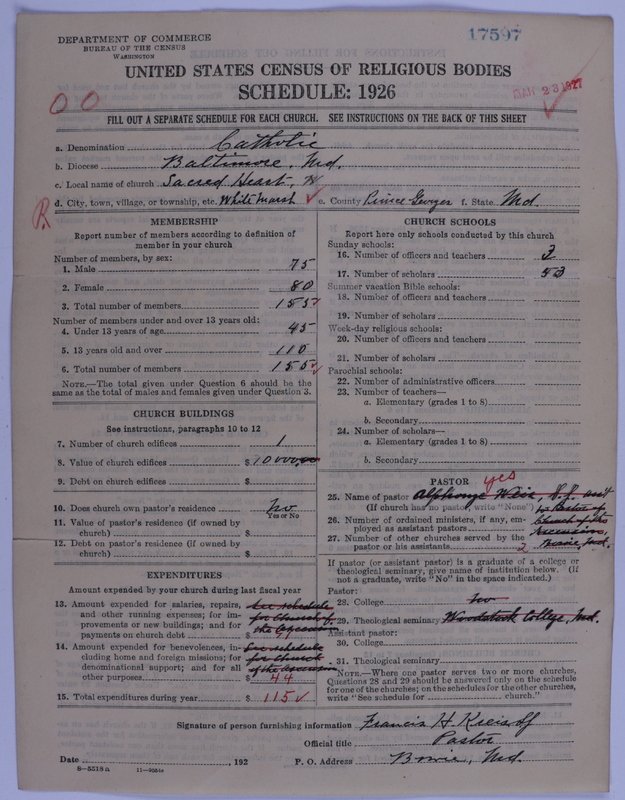 DEPARTMENT OF COMMERCE
BUREAU OF THE CENSUS
WASHINGTON
17597
UNITED STATES CENSUS OF RELIGIOUS BODIES
SCHEDULE: 1926
MAR 23 1927
FILL OUT A SEPARATE SCHEDULE FOR EACH CHURCH. SEE INSTRUCTIONS ON THE BACK OF THIS SHEET
a. Denomination Catholic
b. Diocese Baltimore, Md.
c. Local name of church Sacred Heart,
d. City, town, village, or township, etc. White Marsh e. County Prince Georges f. State Md.
MEMBERSHIP
Report number of members according to definition of
member in your church
Number of members, by sex:
1. Male 75
2. Female 80
3. Total number of members 155
Number of members under and over 13 years old:
4. Under 13 years of age 45
5. 13 years old and over 110
6. Total number of members 155
NOTE.—The total given under Question 6 should be
same as the total of males and females given under Question 3.
CHURCH BUILDINGS
See instructions, paragraphs 10 to 12
7. Number of church edifices 1
8. Value of church edifices $ 10000.00
9. Debt on church edifices $
10. Does church own pastor's residence No
Yes or No
11. Value of pastor's residence (if owned by
church) $
12. Debt on pastor's residence (if owned by
church) $
EXPENDITURES
Amount expended by your church during last fiscal year
13. Amount expended for salaries, repairs, See schedule
and other running expenses; for im- for Church of
provements or new buildings; and for the Ascension
payments on church debt $ 71
14. Amount expended for benevolences, in- See schedule
cluding home and foreign missions; for for Church
denominational support; and for all of the Ascension
other purposes $ 44
15. Total expenditures during year $ 115
CHURCH SCHOOLS
Report here only schools conducted by this church
Sunday schools:
16. Number of officers and teachers 3
17. Number of scholars 53
Summer vacation Bible schools:
18. Number of officers and teachers
19. Number of scholars
Week-day religious schools:
20. Number of officers and teachers
21. Number of scholars
Parochial schools:
22. Number of administrative officers
23. Number of teachers—
a. Elementary (grades 1 to 8)
b. Secondary
24. Number of scholars—
a. Elementary (grades 1 to 8)
b. Secondary
PASTOR yes
25. Name of pastor Alphonse
(If church has no pastor, write "None") Pastor of
26. Number of ordained ministers, if any, em- Church of the
ployed as assistant pastors Ascension,
27. Number of other churches served by the Bowie, Md.
pastor or his assistants 2
If pastor (or assistant pastor) is a graduate of a college or
theological seminary, give name of institution below. (If
not a graduate, write "No" in the space indicated.)
Pastor:
28. College No
29. Theological seminary Woodstock College, Md.
Assistant pastor:
30. College
31. Theological seminary
NOTE.—Where one pastor serves two or more churches,
Questions 28 and 29 should be answered only on the schedule
for one of the churches; on the schedules for the other churches,
write "See schedule for church."
Signature of person furnishing information Francis H.
Official title Pastor
Date , 192 P. O. Address Bowie, Md.
8—5518 a